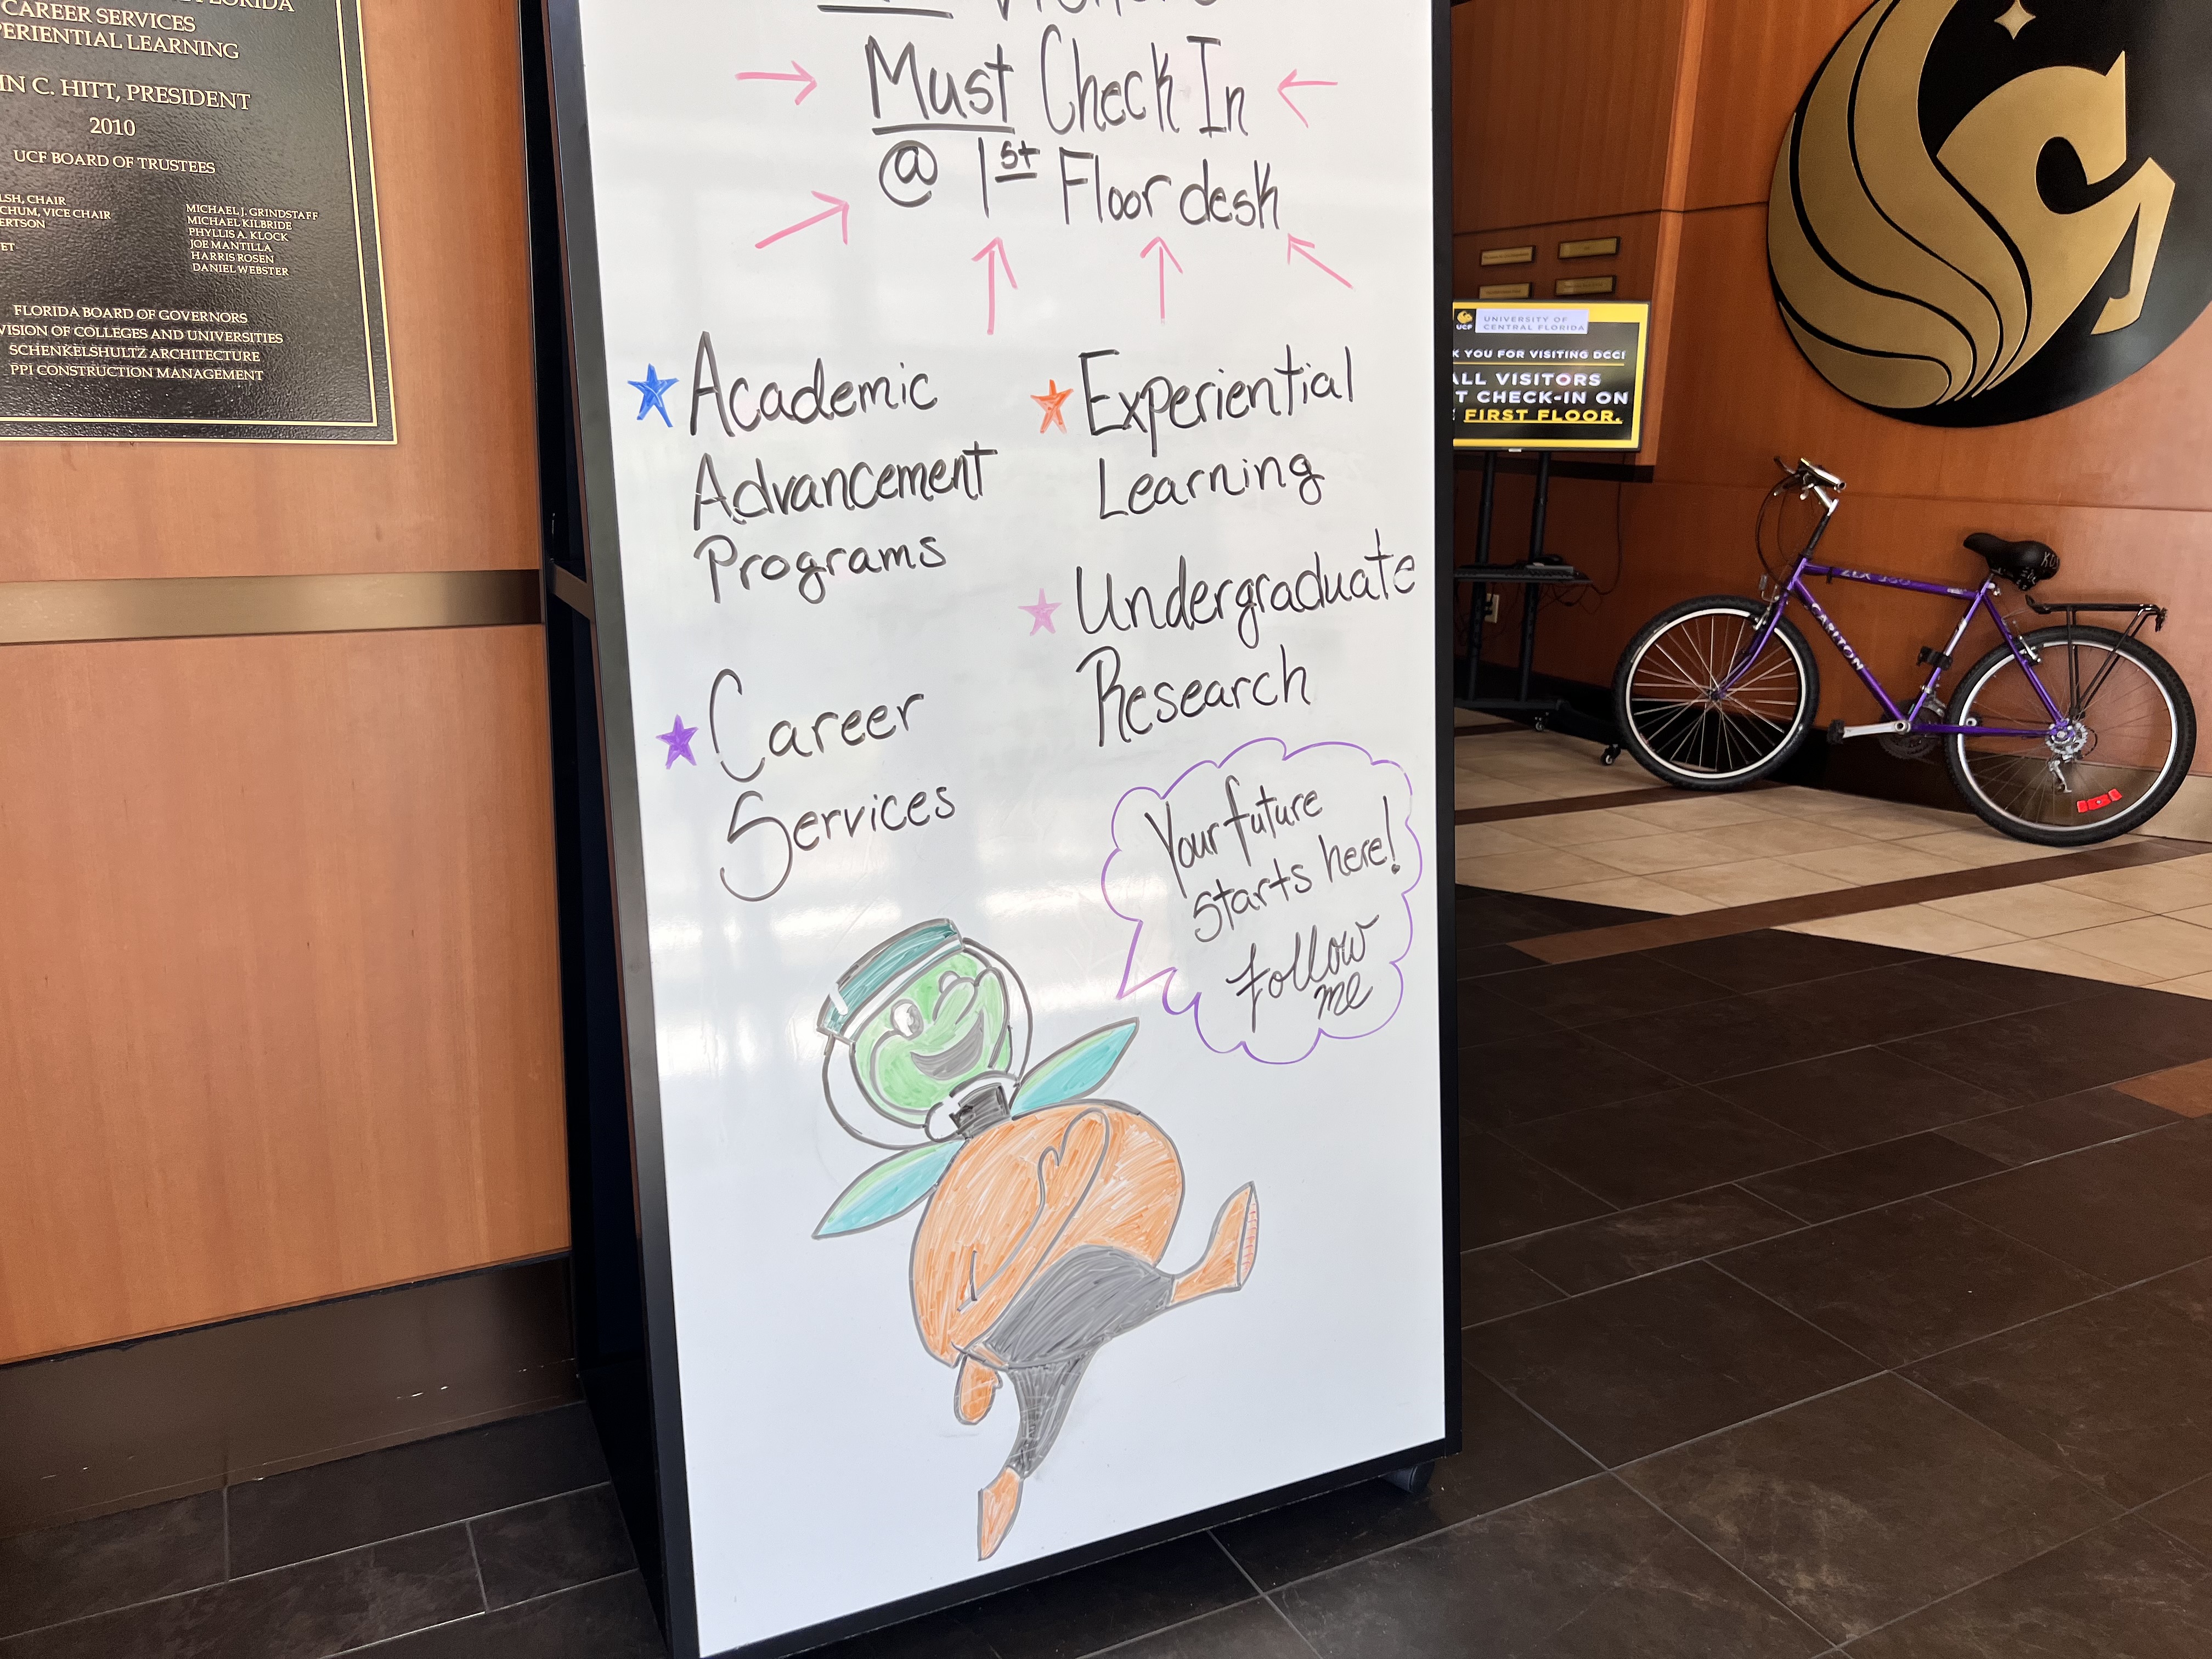 FLORIDA
CAREER SERVICES
PERIENTIAL LEARNING
IN C. HITT, PRESIDENT
2010
UCF BOARD OF TRUSTEES
LSH, CHAIR
CHUM, VICE CHAIR
ERTSON
ET
MICHAEL J. GRINDSTAFF
MICHAEL KILBRIDE
PHYLLIS A. KLOCK
JOE MANTILLA
HARRIS ROSEN
DANIEL WEBSTER
FLORIDA BOARD OF GOVERNORS
VISION OF COLLEGES AND UNIVERSITIES
SCHENKELSHULTZ ARCHITECTURE
PPI CONSTRUCTION MANAGEMENT
Visitors
Must Check In
@ 1st Floor desk
Academic
Advancement
Programs
Career
Services
Experiential
Learning
Undergraduate
Research
Your future
starts here!
Follow
me
UCF
UNIVERSITY OF
CENTRAL FLORIDA
K YOU FOR VISITING DCCI
ALL VISITORS
T CHECK-IN ON
FIRST FLOOR.
CARLTON
ZLX 150